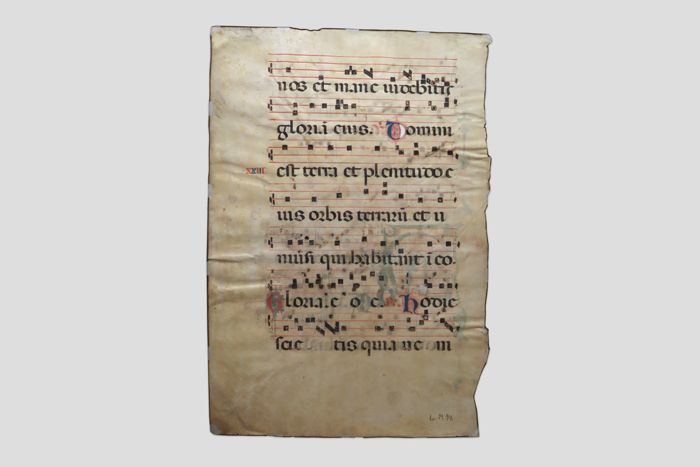 nos et mane videbitis
gloriā eius. Domini
XXIII est terra et plenitudo e
ius orbis terrarū et u
niūsi qui habitant ī co.
Gloria. e o e. Hodie
scie tis quia ue ni